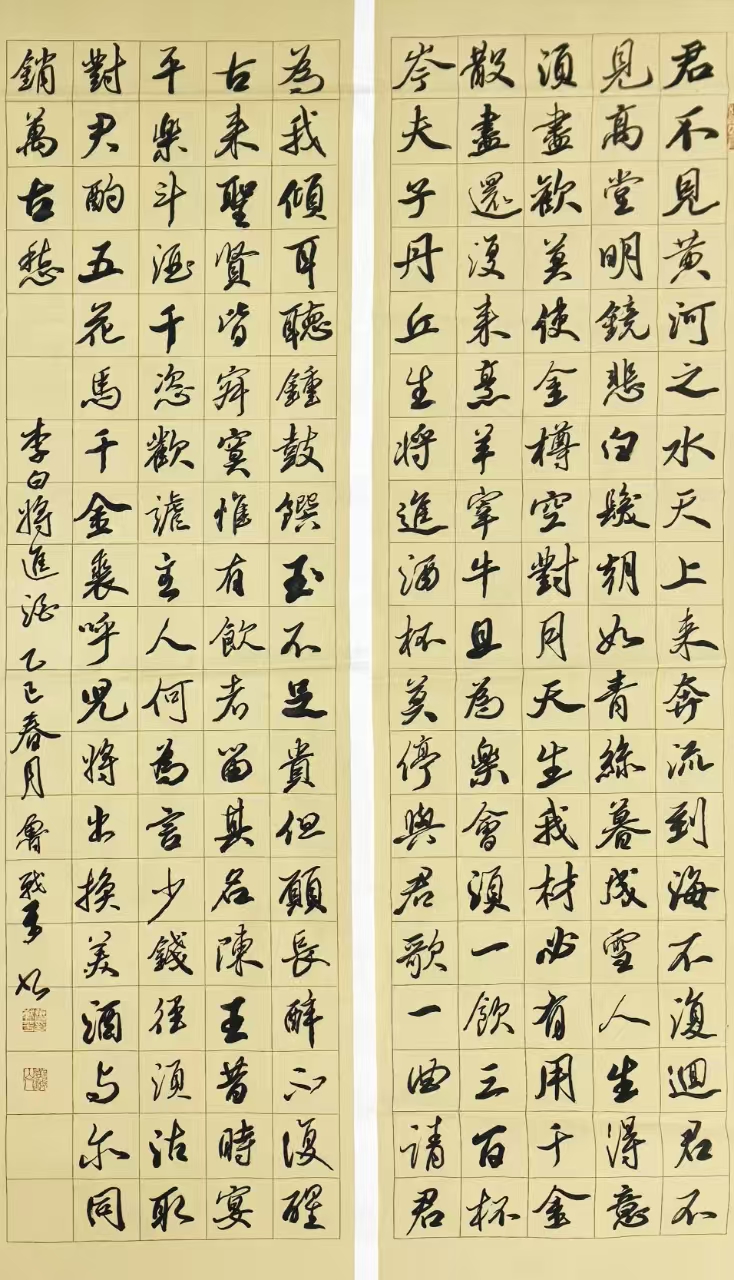 君不見黃河之水天上来奔流到海不復迴君不
見高堂明鏡悲白髮朝如青絲暮成雪人生得意
須盡歡莫使金樽空對月天生我材必有用千金
散盡還復来烹羊宰牛且為樂會須一飲三百杯
岑夫子丹丘生将進酒杯莫停與君歌一曲請君
為我傾耳聽鍾鼓饌玉不足貴但願長醉不復醒
古来聖賢皆寂寞惟有飲者留其名陳王昔時宴
平樂斗酒千恣歡謔主人何為言少錢徑須沽取
對君酌五花馬千金裘呼兒将出換美酒与尔同
銷萬古愁
李白将進酒乙巳春月魯